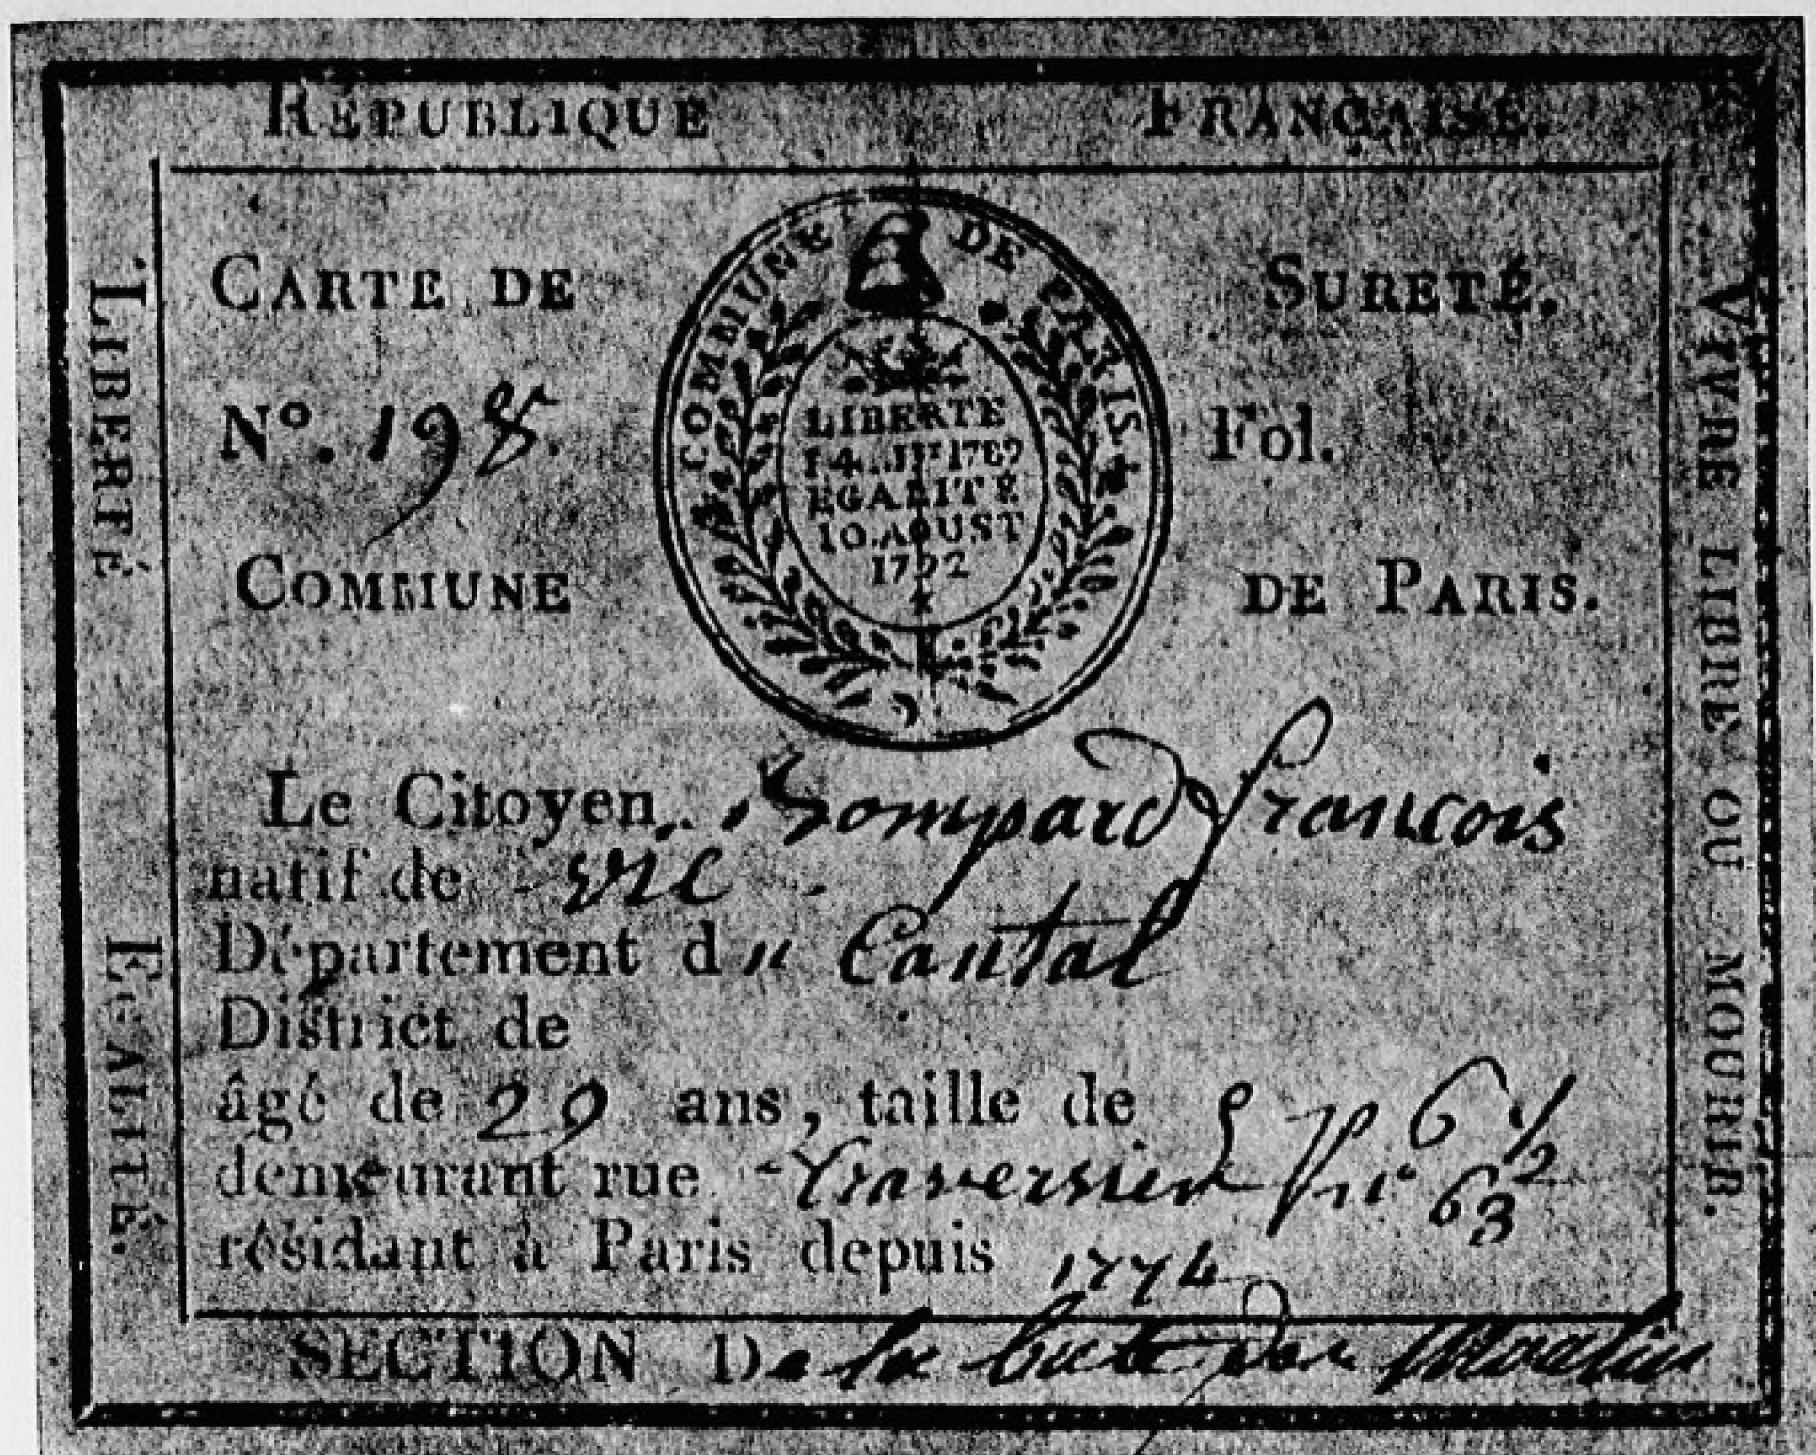 RÉPUBLIQUE FRANÇAISE.
LIBERTÉ
ÉGALITÉ.
VIVRE LIBRE OU MOURIR.
CARTE DE SURETÉ.
N°. 198. Fol.
COMMUNE DE PARIS.
COMMUNE DE PARIS
LIBERTE
14 JUIT 1789
EGALITE
10. AOUST
1792
Le Citoyen Bompard francois
natif de vic
Département du Cantal
District de
âgé de 29 ans, taille de 5 p 6 1/2
demeurant rue traversiere n° 63
résidant à Paris depuis 1774
SECTION De la butte des Moulins